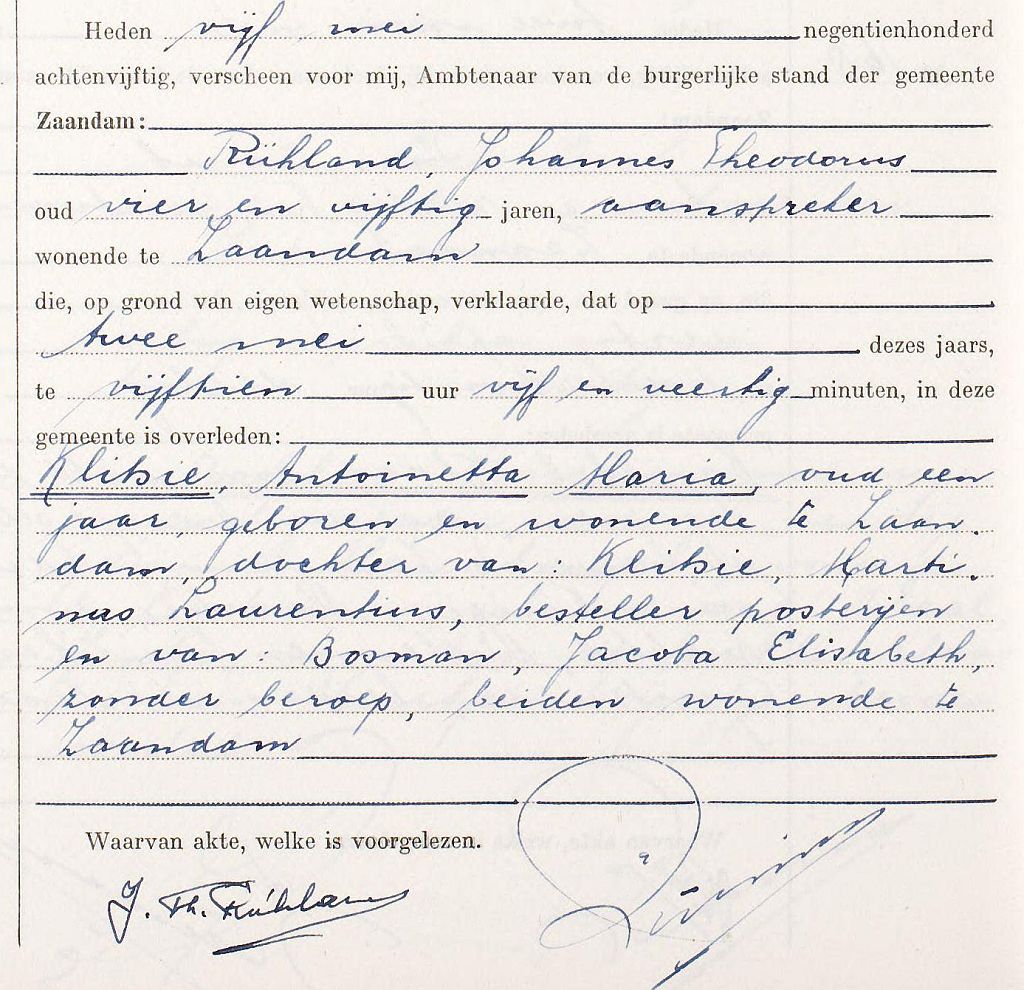 Heden vijf mei negentienhonderd
achtenvijftig, verscheen voor mij, Ambtenaar van de burgerlijke stand der gemeente
Zaandam:
Rühland, Johannes Theodorus
oud vier en vijftig jaren, aanspreker
wonende te Zaandam
die, op grond van eigen wetenschap, verklaarde, dat op
twee mei dezes jaars,
te vijftien uur vijf en veertig minuten, in deze
gemeente is overleden:
Klitsie, Antoinetta Maria, oud een
jaar, geboren en wonende te Zaan.
dam, dochter van: Klitsie, Marti.
nus Laurentius, besteller posterijen
en van: Bosman, Jacoba Elisabeth,
zonder beroep, beiden wonende te
Zaandam
Waarvan akte, welke is voorgelezen.
J. Th. Rühland